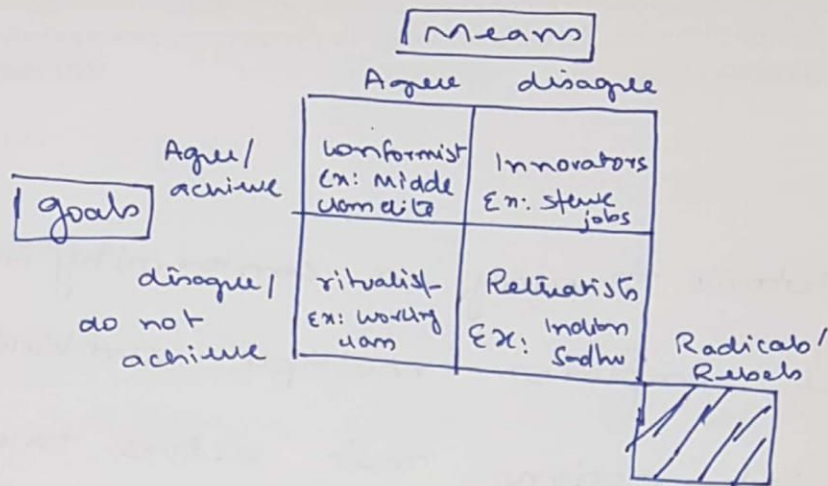 Means
Agree disagree
Agree/
achieve
Conformist
Ex: Midde
class elite
Innovators
Ex: Steve
jobs
goals
disagree/
do not
achieve
ritualist
Ex: working
class
Retreatists
Ex: Indian
Sadhu
Radicals/
Rebels